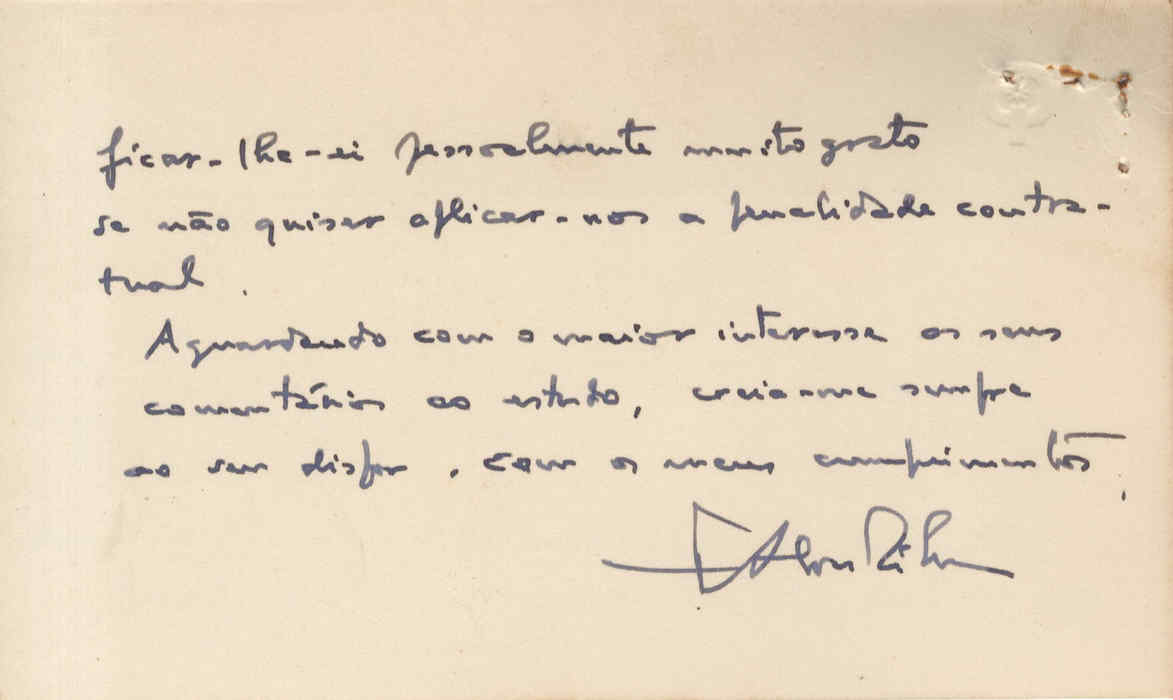 ficar-lhe-ei pessoalmente muito grato
se não quiser aplicar-nos a penalidade contra-
tual.
Aguardando com o maior interesse os seus
comentários ao estudo, creia-me sempre
ao seu dispor, com os meus cumprimentos,